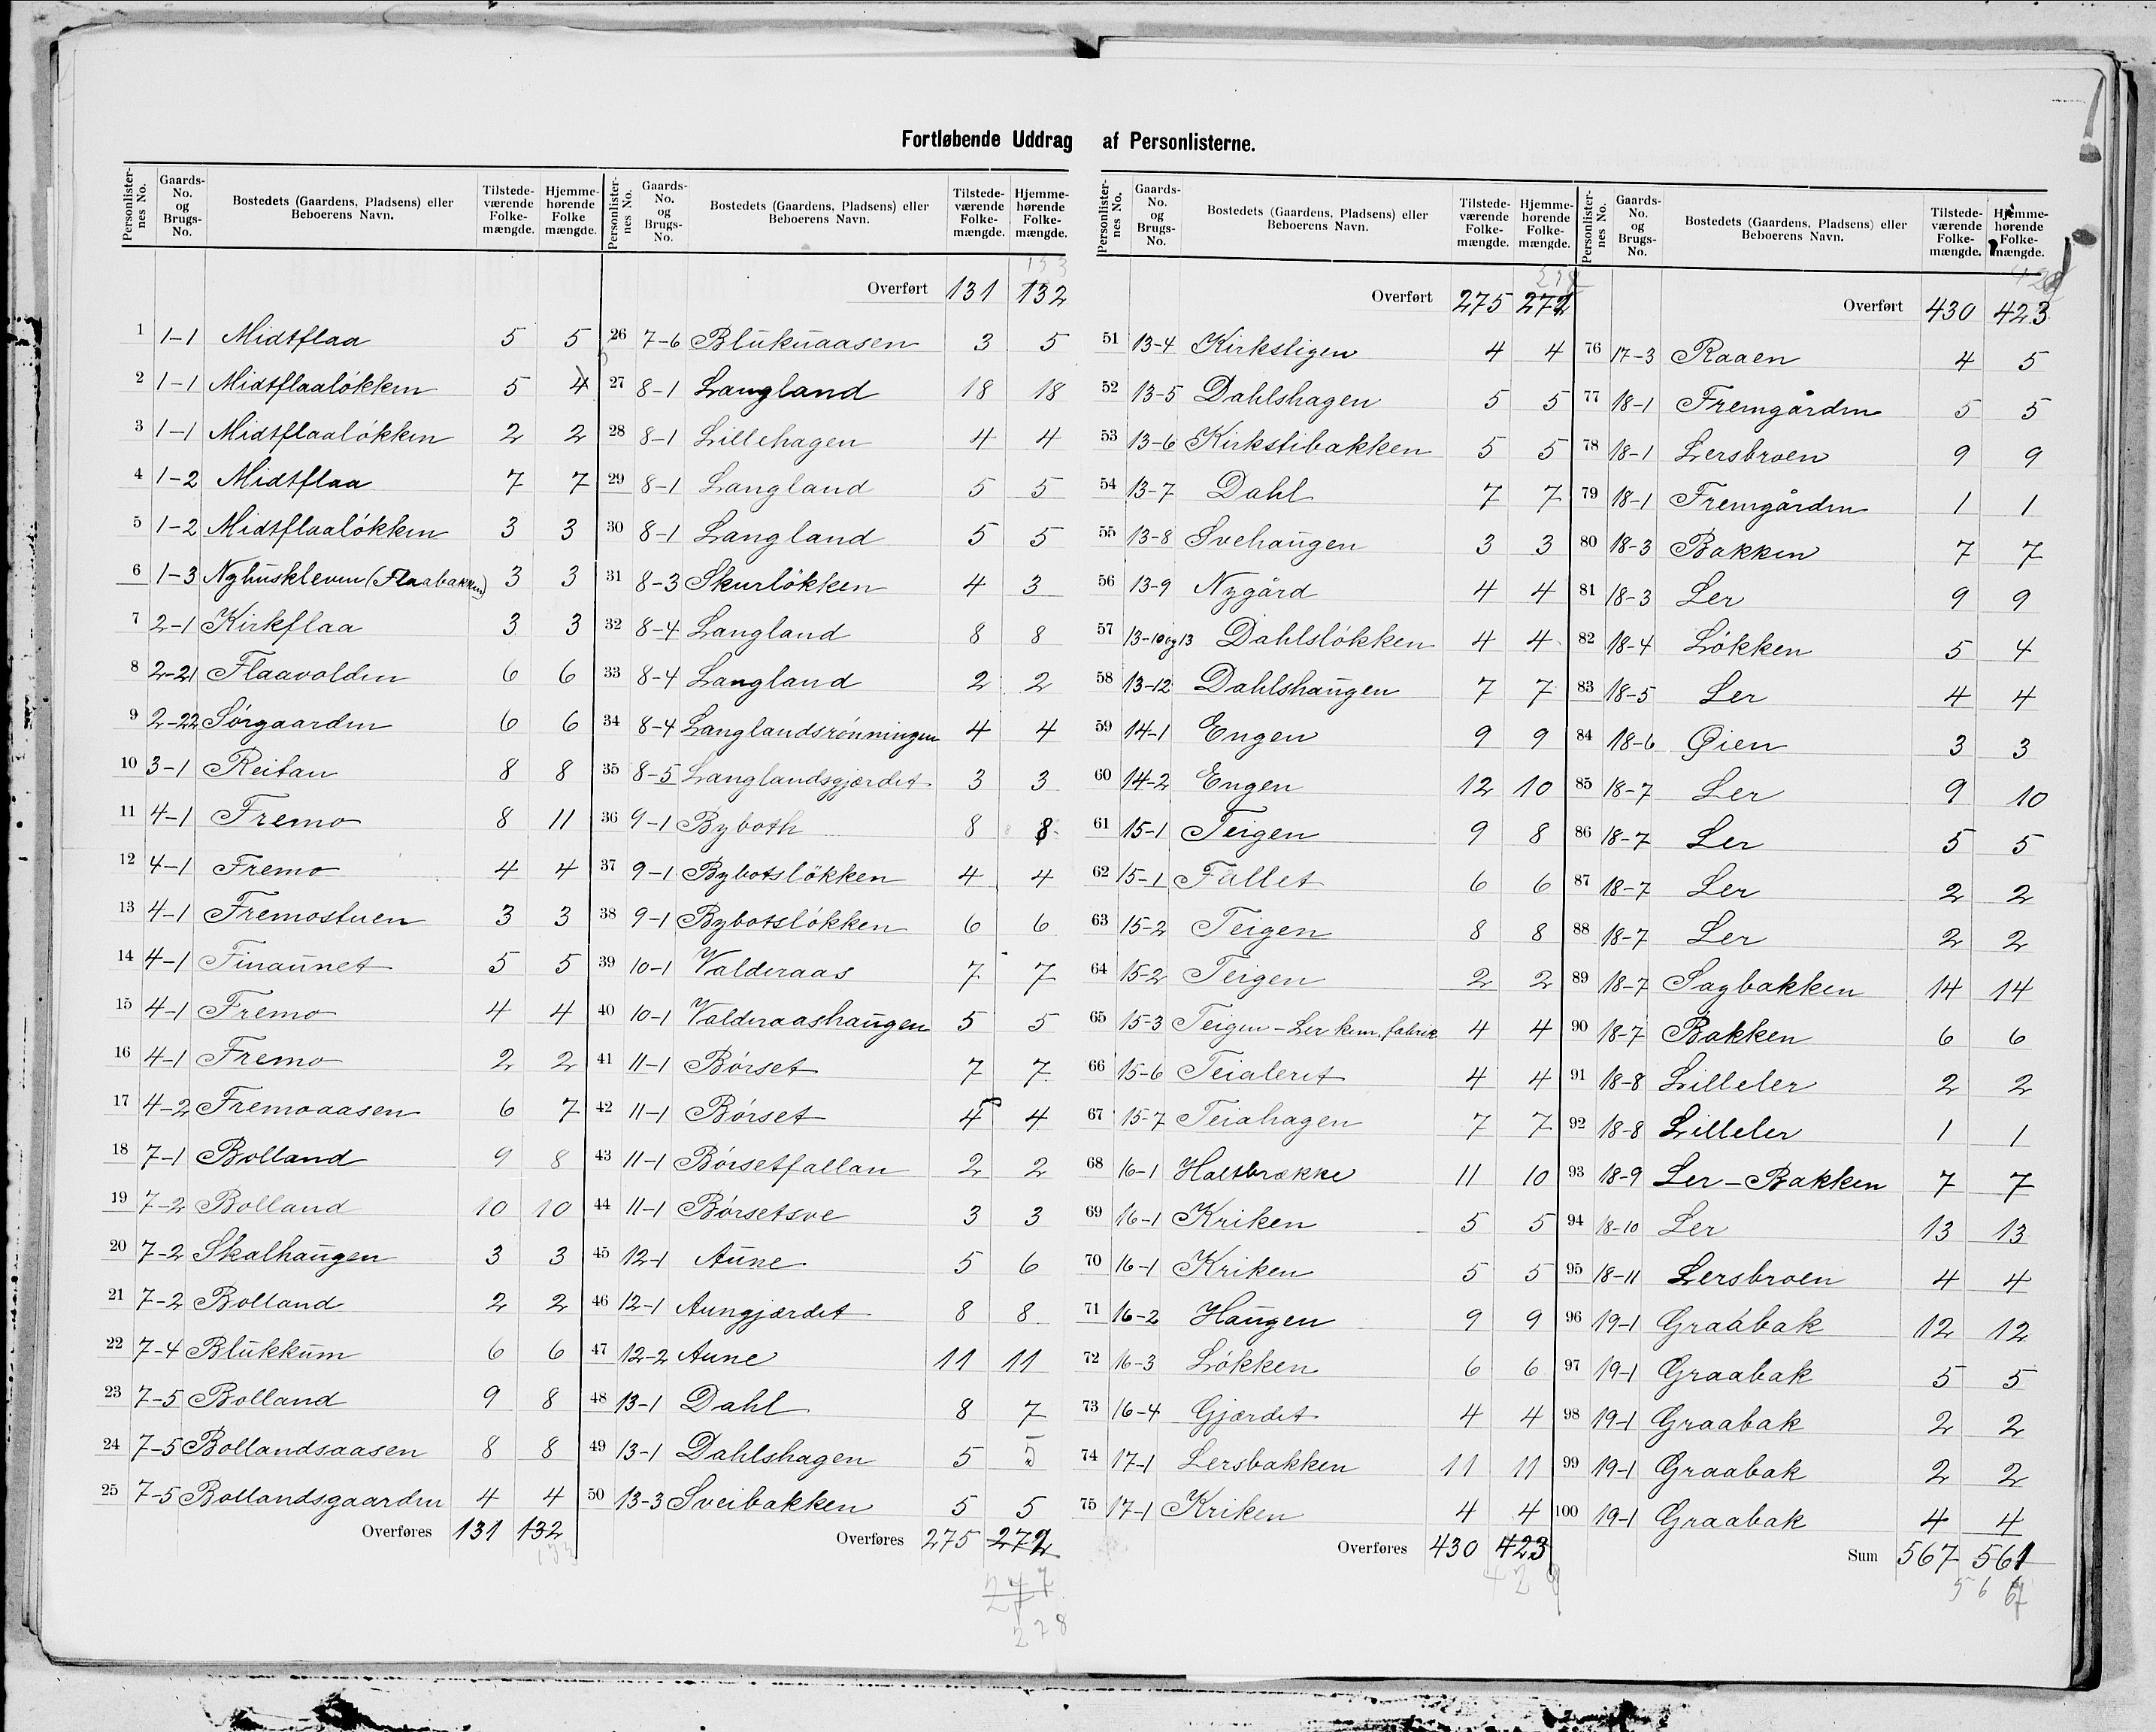 Fortløbende Uddrag af Personlisterne.
Personlisternes No. Gaards-No. og Brugs-No. Bostedets (Gaardens, Pladsens) eller Beboerens Navn. Tilstedeværende Folkemængde. Hjemmehørende Folkemængde.
1 1-1 Midtflaa 5 5
2 1-1 Midtflaaløkken 5 4
3 1-1 Midtflaaløkken 2 2
4 1-2 Midtflaa 7 7
5 1-2 Midtflaaløkken 3 3
6 1-3 Nyhuskleven (Flaabakken) 3 3
7 2-1 Kirkflaa 3 3
8 2-21 Flaavolden 6 6
9 2-22 Sørgaarden 6 6
10 3-1 Reitan 8 8
11 4-1 Fremo 8 11
12 4-1 Fremo 4 4
13 4-1 Fremostuen 3 3
14 4-1 Finaunet 5 5
15 4-1 Fremo 4 4
16 4-1 Fremo 2 2
17 4-2 Fremoaasen 6 7
18 7-1 Bolland 9 8
19 7-2 Bolland 10 10
20 7-2 Skalhaugen 3 3
21 7-2 Bolland 2 2
22 7-4 Blukkum 6 6
23 7-5 Bolland 9 8
24 7-5 Bollandsaasen 8 8
25 7-5 Bollandsgaarden 4 4
Overføres 131 132
133
Personlisternes No. Gaards-No. og Brugs-No. Bostedets (Gaardens, Pladsens) eller Beboerens Navn. Tilstedeværende Folkemængde. Hjemmehørende Folkemængde.
133
Overført 131 132
26 7-6 Blukuaasen 3 5
27 8-1 Langland 18 18
28 8-1 Lillehagen 4 4
29 8-1 Langland 5 5
30 8-1 Langland 5 5
31 8-3 Skurløkken 4 3
32 8-4 Langland 8 8
33 8-4 Langland 2 2
34 8-4 Langlandsrønningen 4 4
35 8-5 Langlandsgjærdet 3 3
36 9-1 Byboth 8 8
37 9-1 Bybotsløkken 4 4
38 9-1 Bybotsløkken 6 6
39 10-1 Valderaas 7 7
40 10-1 Valderaashaugen 5 5
41 11-1 Børset 7 7
42 11-1 Børset 4 4
43 11-1 Børsetfallan 2 2
44 11-1 Børsetsve 3 3
45 12-1 Aune 5 6
46 12-1 Aungjærdet 8 8
47 12-2 Aune 11 11
48 13-1 Dahl 8 7
49 13-1 Dahlshagen 5 5
50 13-3 Sveibakken 5 5
Overføres 275 272
277
278
Personlisternes No. Gaards-No. og Brugs-No. Bostedets (Gaardens, Pladsens) eller Beboerens Navn. Tilstedeværende Folkemængde. Hjemmehørende Folkemængde.
278
Overført 275 272
51 13-4 Kirkstigen 4 4
52 13-5 Dahlshagen 5 5
53 13-6 Kirkstibakken 5 5
54 13-7 Dahl 7 7
55 13-8 Svehaugen 3 3
56 13-9 Nygård 4 4
57 13-10 og 13 Dahlsløkken 4 4
58 13-12 Dahlshaugen 7 7
59 14-1 Engen 9 9
60 14-2 Engen 12 10
61 15-1 Teigen 9 8
62 15-1 Fallet 6 6
63 15-2 Teigen 8 8
64 15-2 Teigen 2 2
65 15-3 Teigen - Ler kem. fabrik 4 4
66 15-6 Teialeret 4 4
67 15-7 Teiahagen 7 7
68 16-1 Haltbrække 11 10
69 16-1 Kriken 5 5
70 16-1 Kriken 5 5
71 16-2 Haugen 9 9
72 16-3 Løkken 6 6
73 16-4 Gjærdet 4 4
74 17-1 Lersbakken 11 11
75 17-1 Kriken 4 4
Overføres 430 423
429
Personlisternes No. Gaards-No. og Brugs-No. Bostedets (Gaardens, Pladsens) eller Beboerens Navn. Tilstedeværende Folkemængde. Hjemmehørende Folkemængde.
Overført 430 423
76 17-3 Raaen 4 5
77 18-1 Fremgården 5 5
78 18-1 Lersbroen 9 9
79 18-1 Fremgården 1 1
80 18-3 Bakken 7 7
81 18-3 Ler 9 9
82 18-4 Løkken 5 4
83 18-5 Ler 4 4
84 18-6 Øien 3 3
85 18-7 Ler 9 10
86 18-7 Ler 5 5
87 18-7 Ler 2 2
88 18-7 Ler 2 2
89 18-7 Sagbakken 14 14
90 18-7 Bakken 6 6
91 18-8 Lilleler 2 2
92 18-8 Lilleler 1 1
93 18-9 Ler - Bakken 7 7
94 18-10 Ler 13 13
95 18-11 Lersbroen 4 4
96 19-1 Graabak 12 12
97 19-1 Graabak 5 5
98 19-1 Graabak 2 2
99 19-1 Graabak 2 2
100 19-1 Graabak 4 4
Sum 567 561